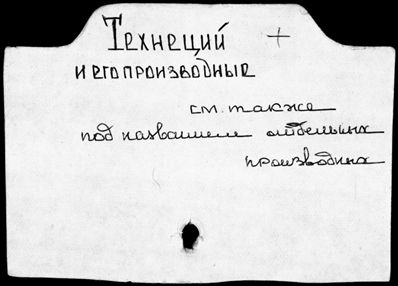 Технеций +
и его производные
см. также
под названием отдельных
производных